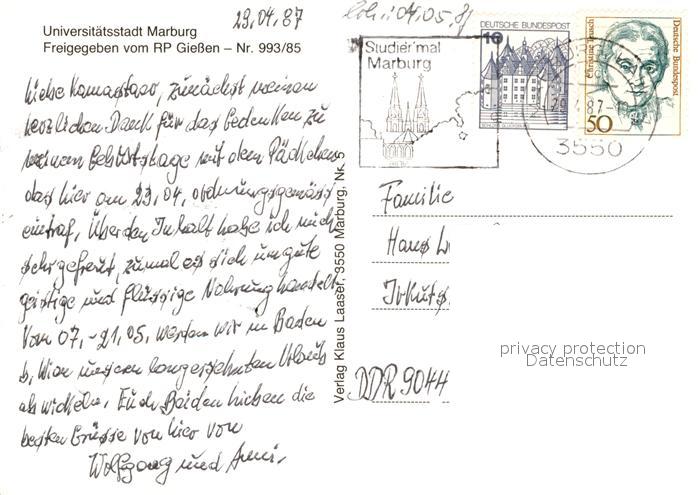 Universitätsstadt Marburg
Freigegeben vom RP Gießen – Nr. 993/85
29.04.87
04.05.87
Studier'mal
Marburg
10
DEUTSCHE BUNDESPOST
Christine Teusch
Deutsche Bundespost
50
3550
Liebe Hannastaar, zunächst meinen
herzlichen Dank für das Gedenken zu
meinem Geburtstage mit dem Päckchen
das hier am 29.04. ordnungsgemäss
eintraf. Über den Inhalt habe ich mich
sehr gefreut, zumal es sich um gute
geistige und flüssige Nahrung handelt.
Vom 07.-21.05. werden wir in Baden
b. Wien unseren langersehnten Urlaub
abwickeln. Euch Beiden hieben die
besten Grüsse von hier von
Wolfgang und Anni.
Verlag Klaus Laaser, 3550 Marburg, Nr. 5
Familie
Hans
Irkuts
DDR 9044
privacy protection
Datenschutz